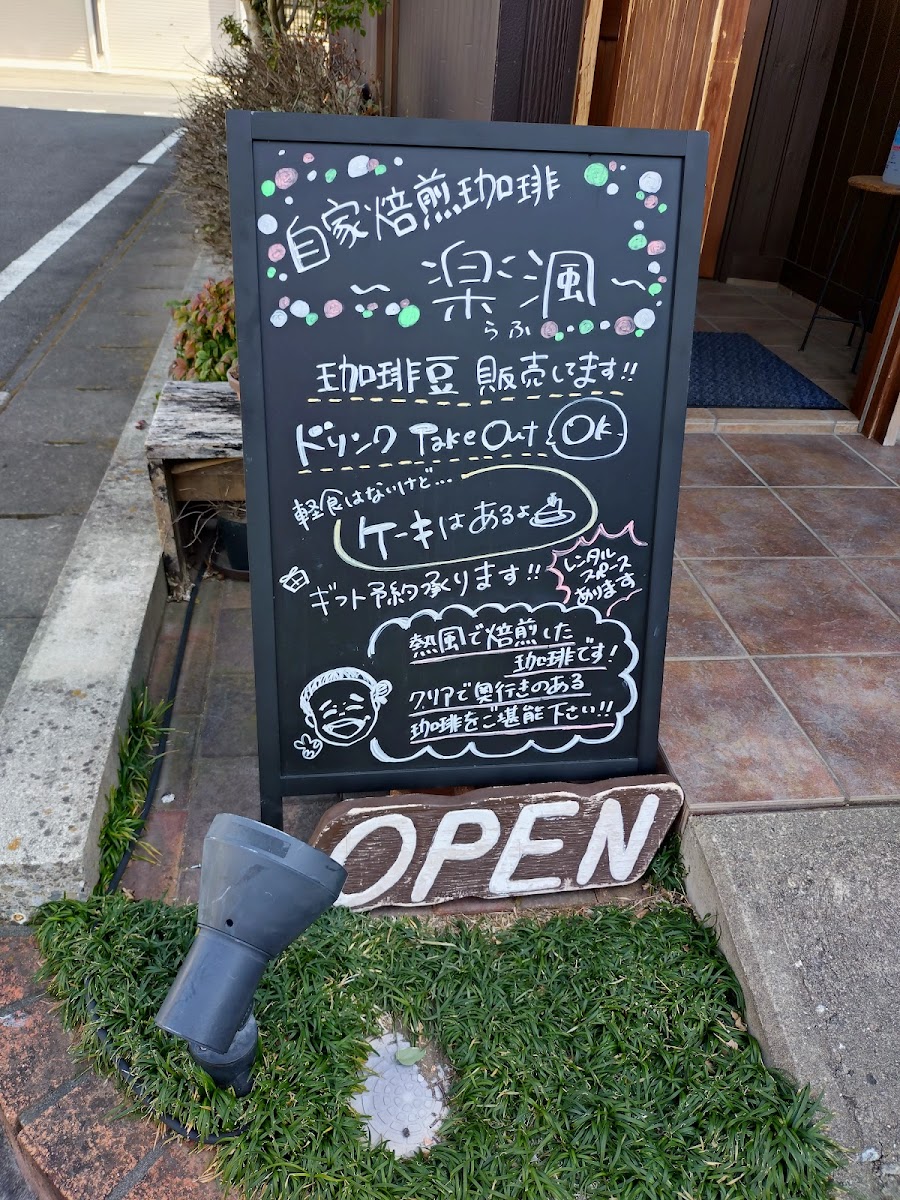 自家焙煎珈琲
~楽渢~
らふ
珈琲豆 販売してます!!
ドリンク Take Out OK.
軽食はないけど...
ケーキはあるよ
レンタル
スペース
あります
ギフト予約承ります!!
熱風で焙煎した
珈琲です!
クリアで奥行きのある
珈琲をご堪能下さい!!
OPEN